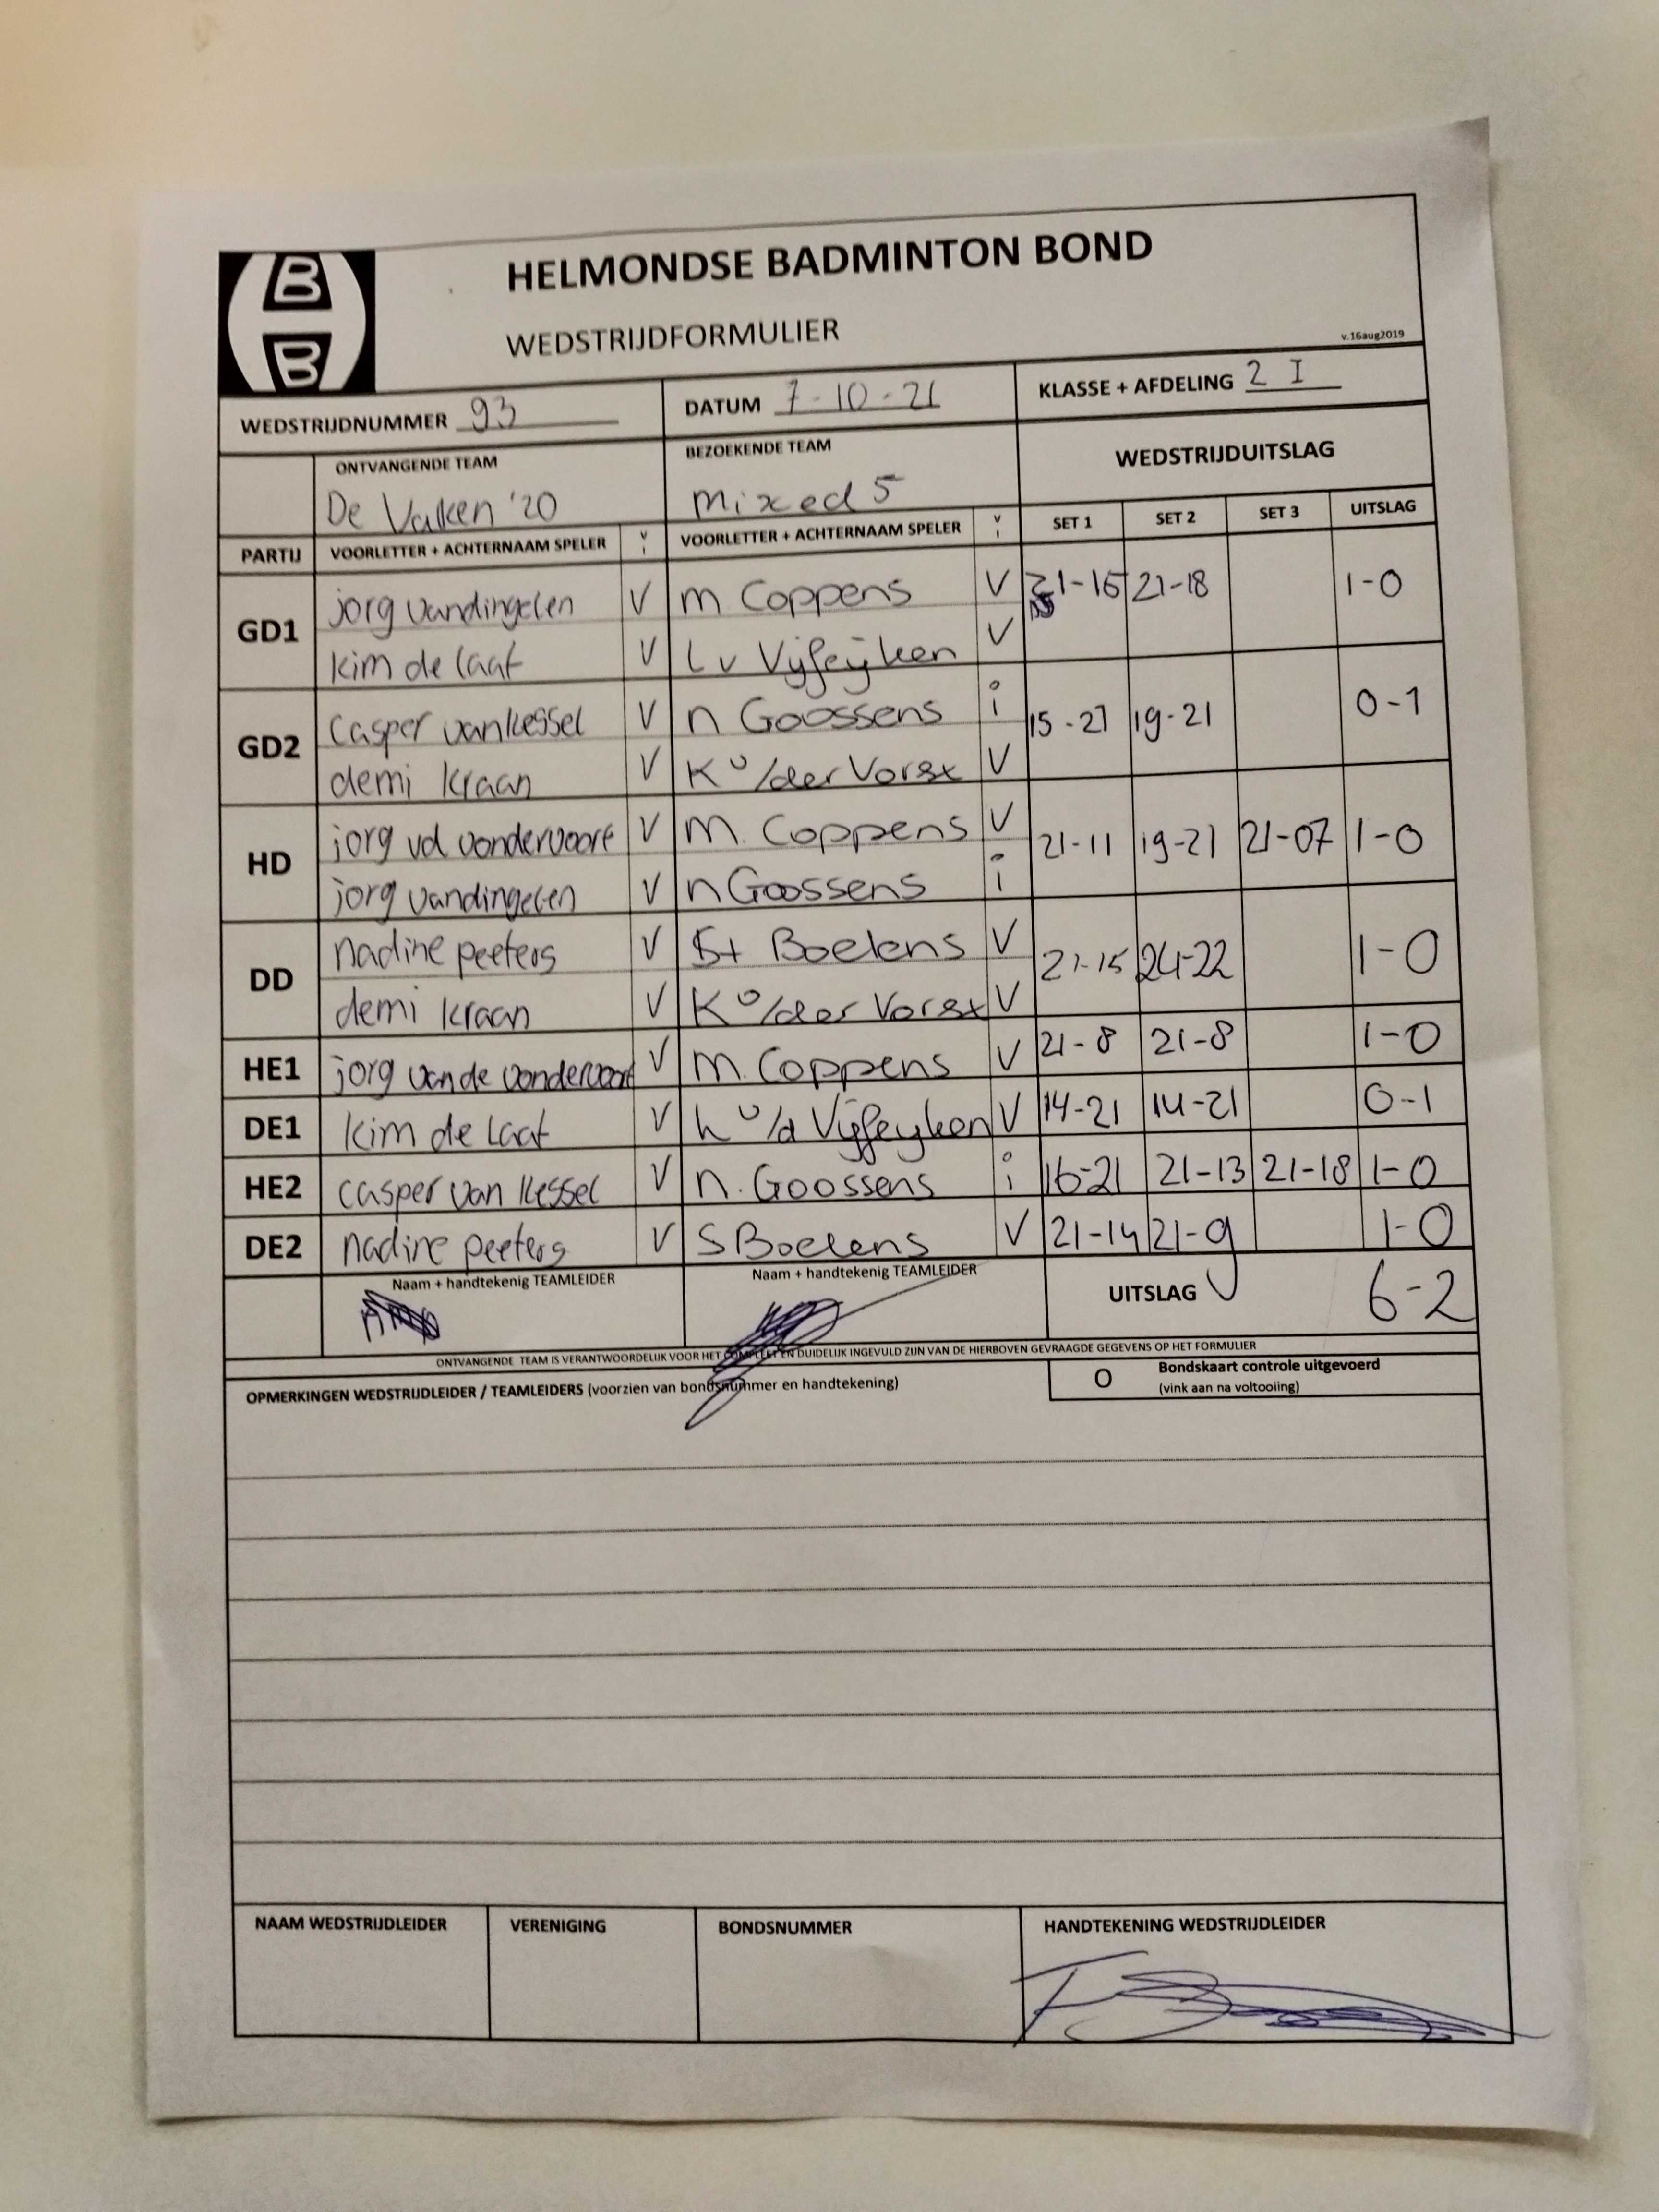 HELMONDSE BADMINTON BOND
WEDSTRIJDFORMULIER
v.16aug2019
WEDSTRIJDNUMMER 93 DATUM 7-10-21 KLASSE + AFDELING 2 I
ONTVANGENDE TEAM BEZOEKENDE TEAM WEDSTRIJDUITSLAG
De Valken '20 Mixed 5
PARTIJ VOORLETTER + ACHTERNAAM SPELER V I VOORLETTER + ACHTERNAAM SPELER V I SET 1 SET 2 SET 3 UITSLAG
GD1 jorg vandingelen V M Coppens V 21-16 21-18 1-0
kim de laat V L v Vijfeijken V
GD2 Casper van kessel V n Goossens i 15-21 19-21 0-1
demi kraan V K v/der Vorst V
HD jorg vd vondervoort V M. Coppens V 21-11 19-21 21-07 1-0
jorg vandingelen V n Goossens i
DD nadine peeters V St Boelens V 21-15 24-22 1-0
demi kraan V K v/der Vorst V
HE1 jorg van de vondervoort V M. Coppens V 21-8 21-8 1-0
DE1 kim de Laat V L v/d Vijfeyken V 14-21 14-21 0-1
HE2 casper van kessel V n. Goossens i 16-21 21-13 21-18 1-0
DE2 nadine peeters V S Boelens V 21-14 21-9 1-0
Naam + handtekenig TEAMLEIDER Naam + handtekenig TEAMLEIDER UITSLAG 6-2
ONTVANGENDE TEAM IS VERANTWOORDELIJK VOOR HET COMPLEET EN DUIDELIJK INGEVULD ZIJN VAN DE HIERBOVEN GEVRAAGDE GEGEVENS OP HET FORMULIER
OPMERKINGEN WEDSTRIJDLEIDER / TEAMLEIDERS (voorzien van bondsnummer en handtekening) O Bondskaart controle uitgevoerd
(vink aan na voltooiing)
NAAM WEDSTRIJDLEIDER VERENIGING BONDSNUMMER HANDTEKENING WEDSTRIJDLEIDER